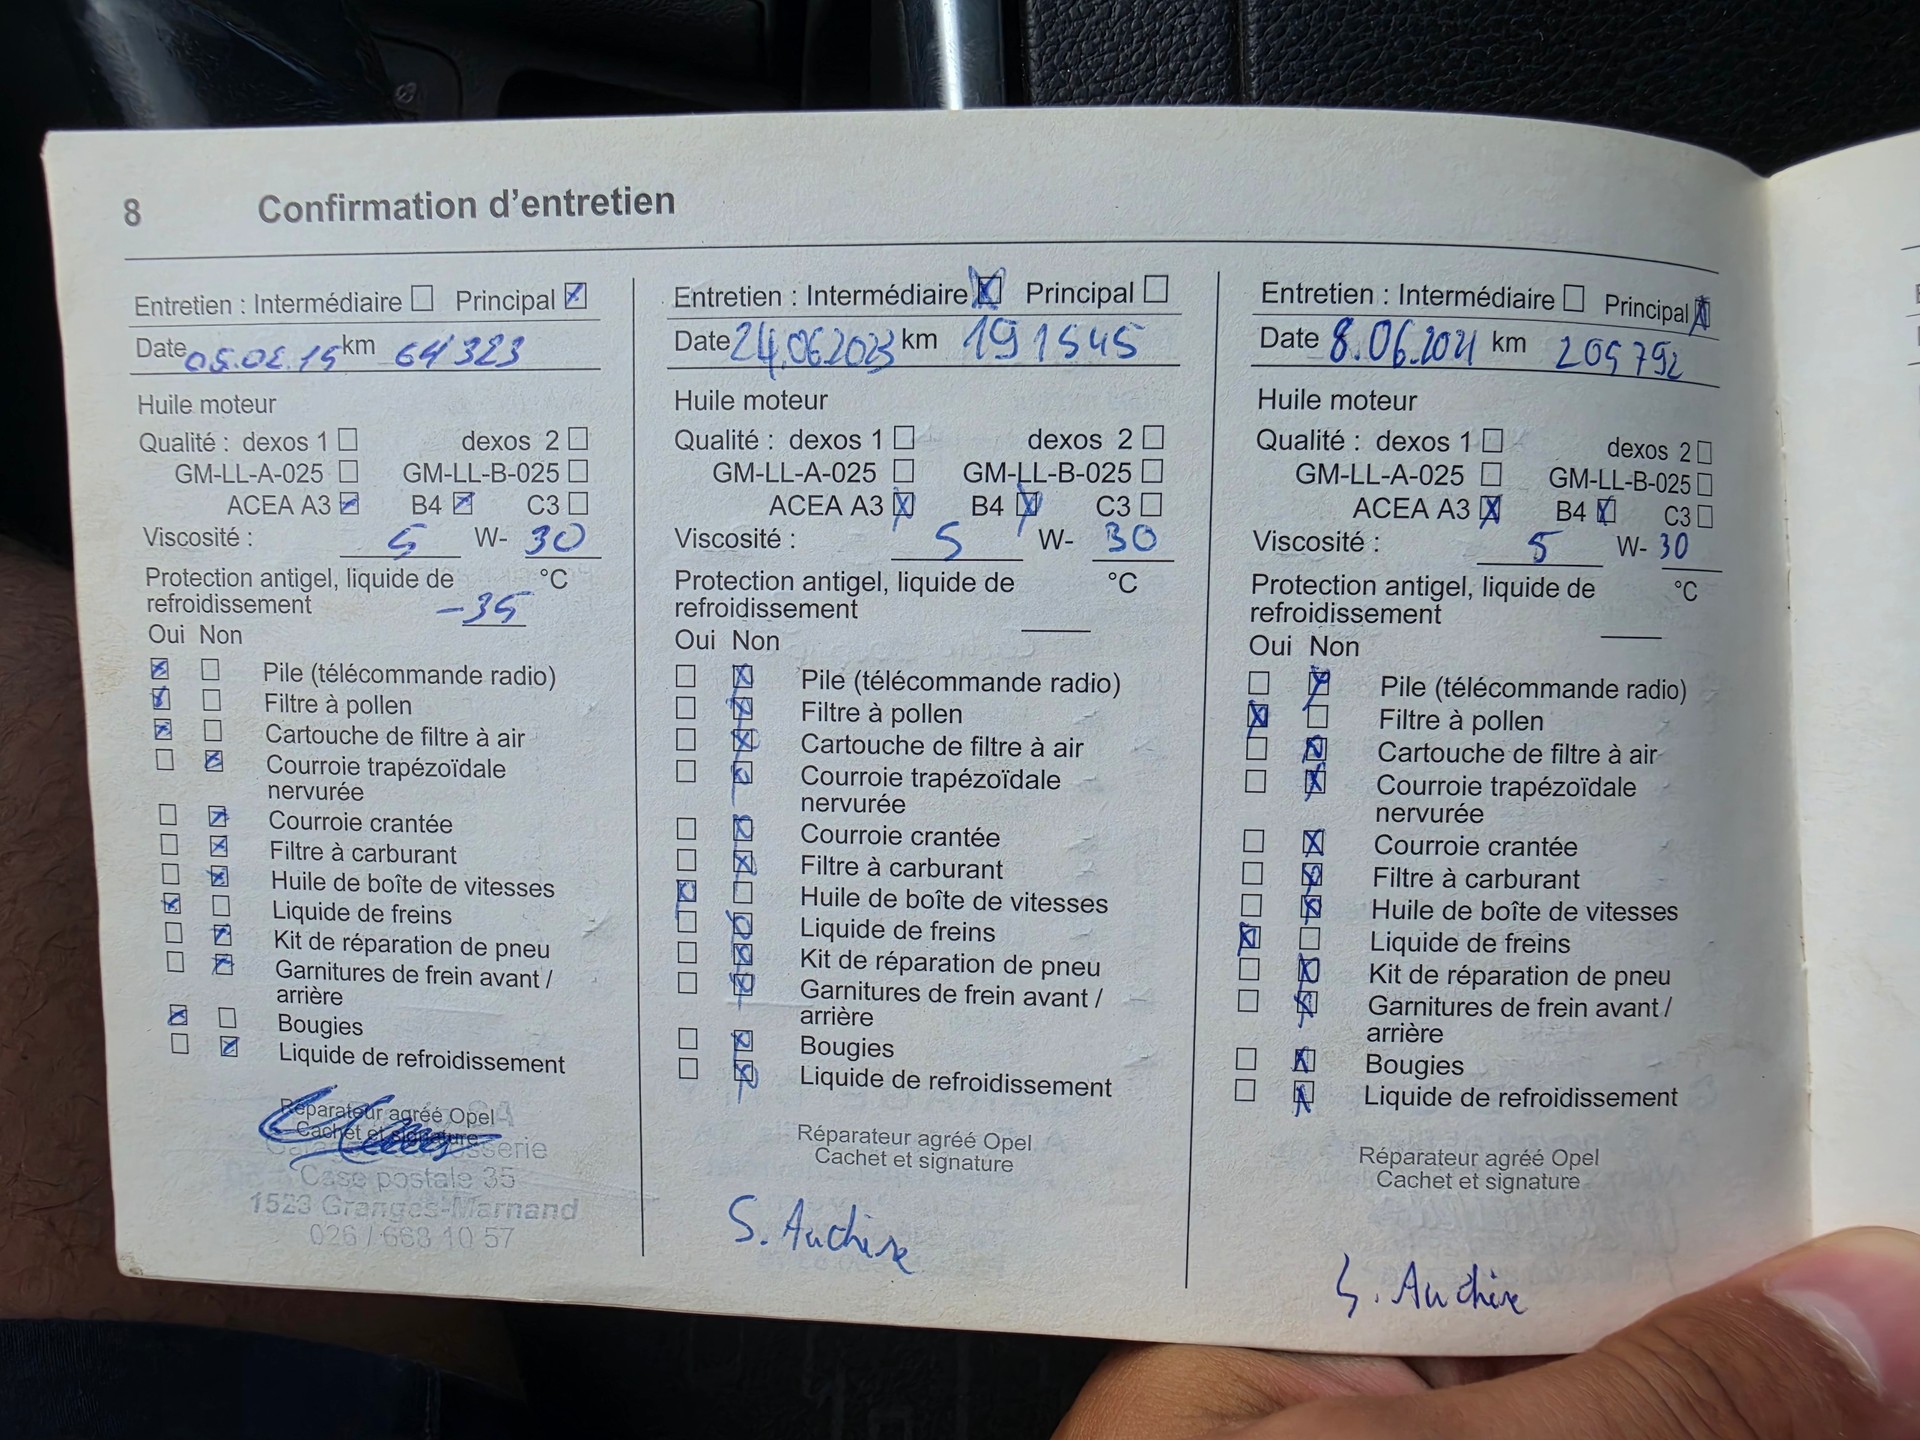 8 Confirmation d'entretien
Entretien : Intermédiaire Principal
Date 05.02.15 km 64 323
Huile moteur
Qualité : dexos 1 dexos 2
GM-LL-A-025 GM-LL-B-025
ACEA A3 B4 C3
Viscosité : 5 W- 30
Protection antigel, liquide de °C
refroidissement -35
Oui Non
Pile (télécommande radio)
Filtre à pollen
Cartouche de filtre à air
Courroie trapézoïdale
nervurée
Courroie crantée
Filtre à carburant
Huile de boîte de vitesses
Liquide de freins
Kit de réparation de pneu
Garnitures de frein avant /
arrière
Bougies
Liquide de refroidissement
Réparateur agréé Opel
Cachet et signature
Case postale 35
1523 Granges-Marnand
026 / 668 10 57
Entretien : Intermédiaire Principal
Date 24.06.2023 km 191545
Huile moteur
Qualité : dexos 1 dexos 2
GM-LL-A-025 GM-LL-B-025
ACEA A3 B4 C3
Viscosité : 5 W- 30
Protection antigel, liquide de °C
refroidissement
Oui Non
Pile (télécommande radio)
Filtre à pollen
Cartouche de filtre à air
Courroie trapézoïdale
nervurée
Courroie crantée
Filtre à carburant
Huile de boîte de vitesses
Liquide de freins
Kit de réparation de pneu
Garnitures de frein avant /
arrière
Bougies
Liquide de refroidissement
Réparateur agréé Opel
Cachet et signature
S.
Entretien : Intermédiaire Principal
Date km 205792
Huile moteur
Qualité : dexos 1 dexos 2
GM-LL-A-025 GM-LL-B-025
ACEA A3 B4 C3
Viscosité : 5 W- 30
Protection antigel, liquide de °C
refroidissement
Oui Non
Pile (télécommande radio)
Filtre à pollen
Cartouche de filtre à air
Courroie trapézoïdale
nervurée
Courroie crantée
Filtre à carburant
Huile de boîte de vitesses
Liquide de freins
Kit de réparation de pneu
Garnitures de frein avant /
arrière
Bougies
Liquide de refroidissement
Réparateur agréé Opel
Cachet et signature
S.